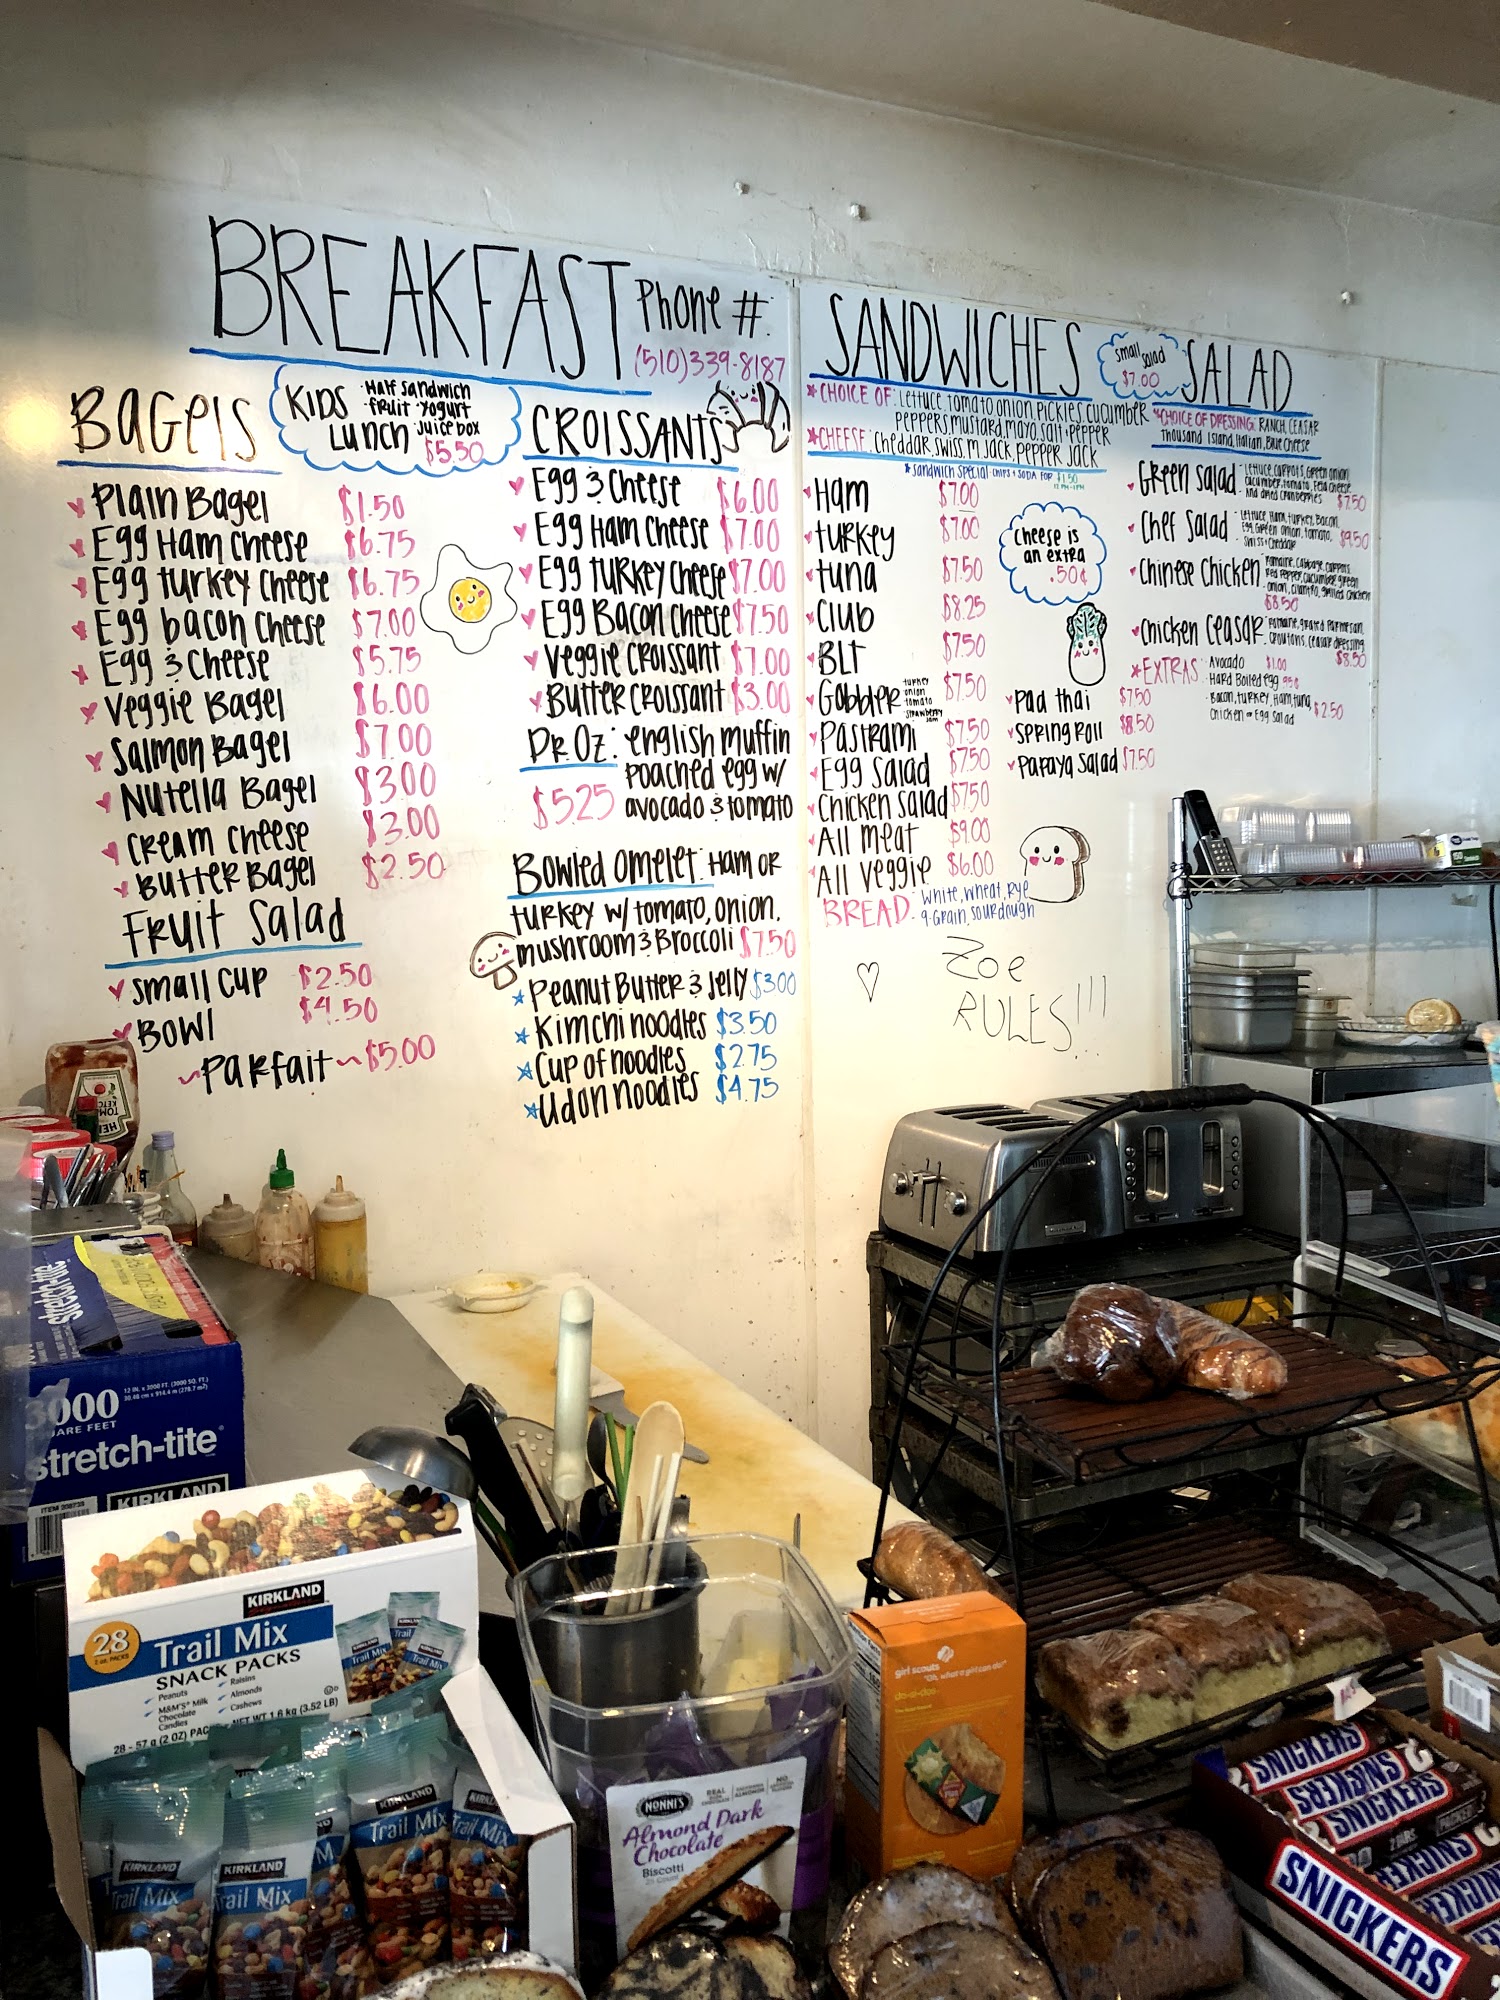 BREAKFAST
Phone #:
(510)339-8187
BAGELS
KIDS LUNCH
Half sandwich
fruit · yogurt
juice box
$5.50
Plain Bagel $1.50
Egg Ham Cheese $6.75
Egg turkey Cheese $6.75
Egg bacon Cheese $7.00
Egg & Cheese $5.75
Veggie Bagel $6.00
Salmon Bagel $7.00
Nutella Bagel $3.00
Cream Cheese $3.00
Butter Bagel $2.50
Fruit Salad
small cup $2.50
Bowl $4.50
~Parfait~$5.00
CROISSANTS
Egg & Cheese $6.00
Egg Ham Cheese $7.00
Egg Turkey Cheese $7.00
Egg Bacon Cheese $7.50
Veggie Croissant $7.00
Butter Croissant $3.00
Dr. Oz: english muffin
poached egg w/
$5.25 avocado & tomato
Bowled Omelet: Ham or
turkey w/ tomato, onion,
mushroom & Broccoli $7.50
Peanut Butter & Jelly $3.00
Kimchi noodles $3.50
Cup of noodles $2.75
Udon noodles $4.75
SANDWICHES
*CHOICE OF: Lettuce, tomato, onion, pickles, cucumber
peppers, mustard, mayo, salt & pepper
*CHEESE: cheddar, swiss, m. jack, pepper jack
*sandwich special chips + soda for $1.50
12 PM-1 PM
Ham $7.00
turkey $7.00
tuna $7.50
Club $8.25
BLT $7.50
Gobbler turkey onion tomato strawberry jam $7.50
Pastrami $7.50
Egg Salad $7.50
Chicken Salad $7.50
All meat $9.00
All veggie $6.00
BREAD: White, Wheat, Rye
9-Grain, sourdough
Cheese is
an extra
.50¢
Pad thai $7.50
Spring Roll $8.50
Papaya Salad $7.50
Zoe
RULES!!!
small salad
$7.00
SALAD
*CHOICE OF DRESSING: RANCH, CEASAR
Thousand Island, Italian, Blue Cheese
Green Salad - Lettuce, carrots, Green onion
cucumber, tomato, Feta Cheese
and dried cranberries $7.50
Chef Salad - Lettuce, Ham, turkey, Bacon,
Egg, Green onion, tomato,
swiss + Cheddar $9.50
Chinese Chicken - Romaine, Cabbage, carrots,
Red pepper, cucumber, green
onion, cilantro, grilled chicken
$8.50
Chicken Ceasar - Romaine, grated Parmesan,
Croutons, Ceasar dressing
$8.50
*EXTRAS: Avocado $1.00
Hard Boiled egg 95¢
Bacon, turkey, Ham, tuna, $2.50
Chicken or Egg Salad
stretch-tite
3000
12 IN. x 3000 FT. (3000 SQ. FT.)
30.48 cm x 914.4 m (278.7 m²)
stretch-tite
KIRKLAND
KIRKLAND
28
2 oz. PACKS
Trail Mix
SNACK PACKS
Peanuts
M&M'S® Milk
Chocolate
Candies
Raisins
Almonds
Cashews
28 - 57 g (2 OZ) PACKS NET WT 1.6 kg (3.52 LB)
KIRKLAND
Trail Mix
KIRKLAND
Trail Mix
KIRKLAND
Trail Mix
NONNI'S
Almond Dark
Chocolate
Biscotti
25 Count
girl scouts
"Oh, what a girl can do!"
do-si-dos
SNICKERS
SNICKERS
SNICKERS
SNICKERS
SNICKERS